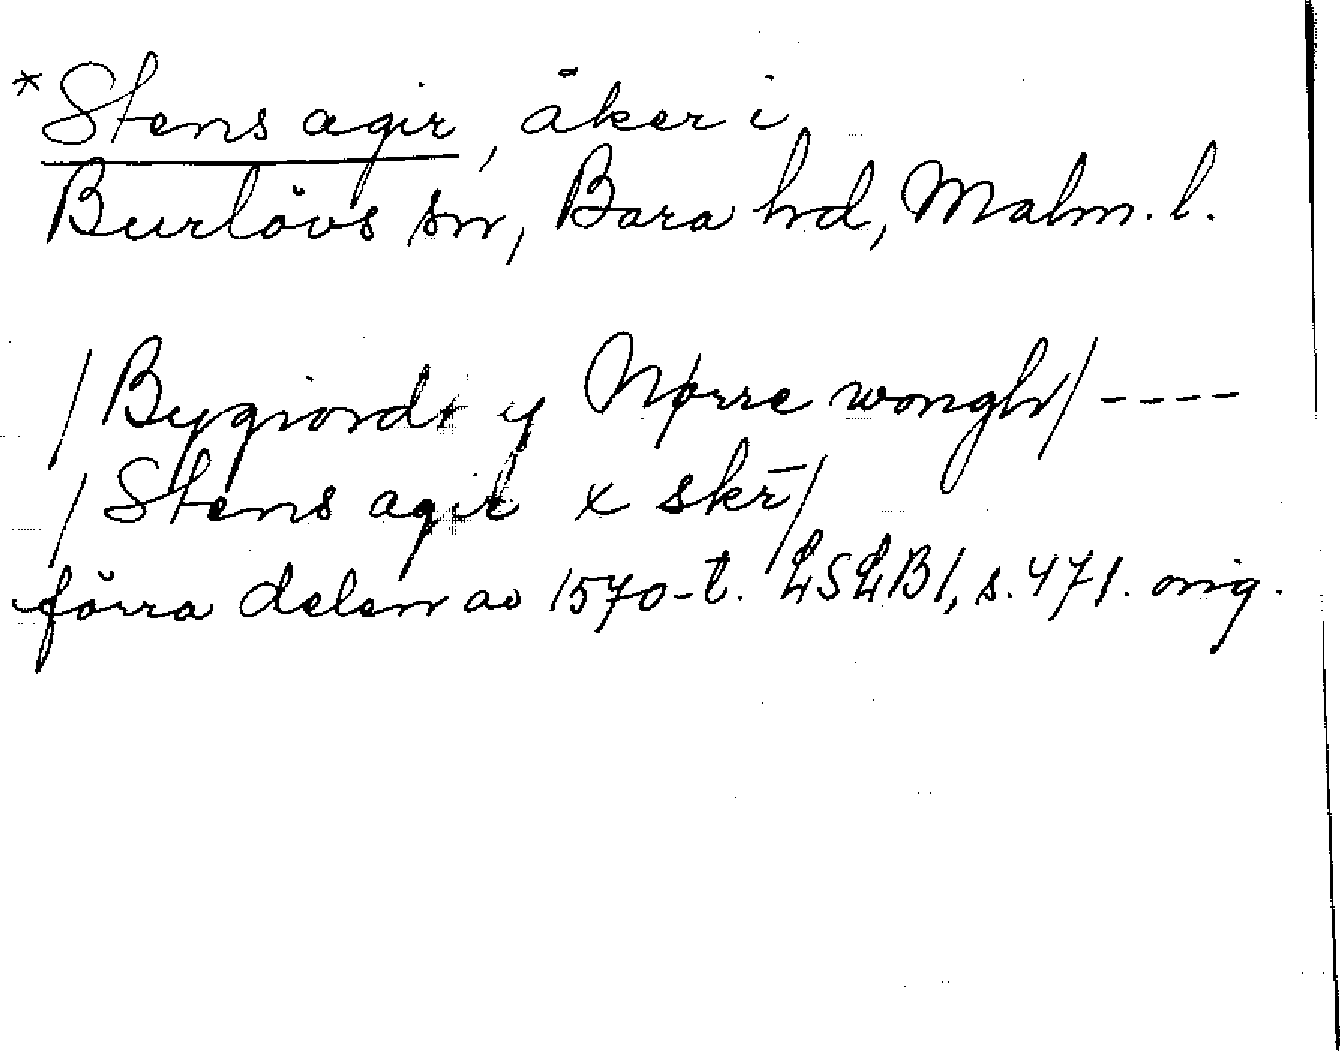 *Stens agir, åker i
Burlövs sn, Bara hd, Malm. l.
/Bygiordt y Nørre wongh/ ----
/Stens agir x skr̄/
förra delen av 1570-t. LSLB1, s. 471. orig.